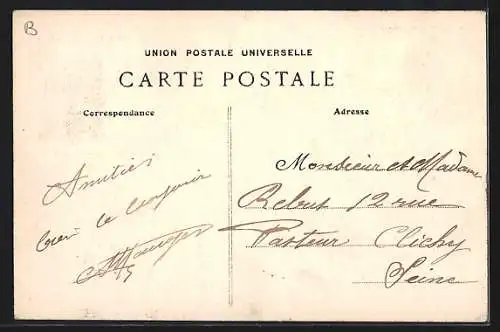 B
UNION POSTALE UNIVERSELLE
CARTE POSTALE
Correspondance
Adresse
Amitiés
bien le bonjour
Monsieur et Madame
Rebut 12 rue
Pasteur Clichy
Seine